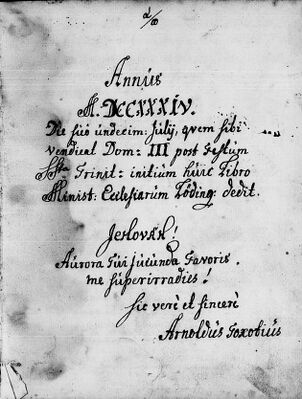 α/ω
Annus
M.DCCXXXIV.
Die suo undecim: Julij, quem sibi
vendicat Dom: III post Festum
SStæ Trinit: initium huic Libro
Minist: Ecclesiarum Töding: dedit.
Jehovah!
Aurora Tui jucunda Favoris
me superirradiet!
sic verè et sincerè
Arnoldus